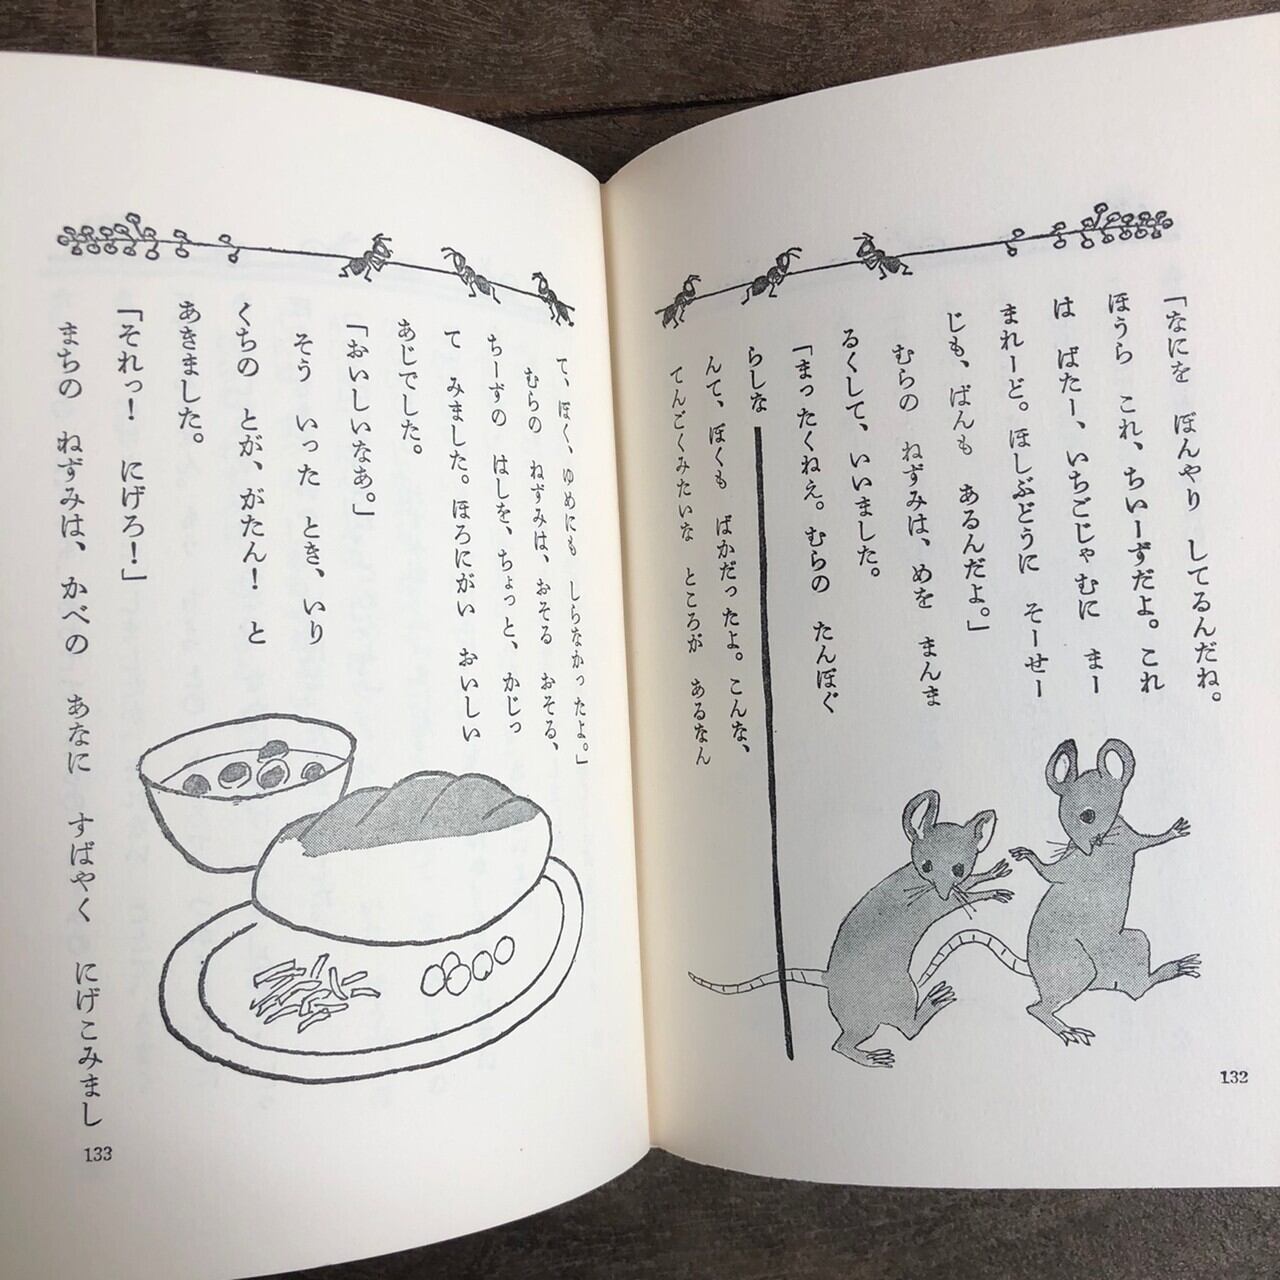 「なにを　ぼんやり　してるんだね。
ほうら　これ、ちいーずだよ。これ
は　ばたー、いちごじゃむに　まー
まれーど。ほしぶどうに　そーせー
じも、ぱんも　あるんだよ。」
むらの　ねずみは、めを　まんま
るくして、いいました。
「まったくねえ。むらの　たんぼぐ
らしな
んて、ぼくも　ばかだったよ。こんな、
てんごくみたいな　ところが　あるなん
132
て、ぼく、ゆめにも　しらなかったよ。」
むらの　ねずみは、おそる　おそる、
ちーずの　はしを、ちょっと、かじっ
て　みました。ほろにがい　おいしい
あじでした。
「おいしいなあ。」
そう　いった　とき、いり
くちの　とが、がたん！　と
あきました。
「それっ！　にげろ！」
まちの　ねずみは、かべの　あなに　すばやく　にげこみまし
133